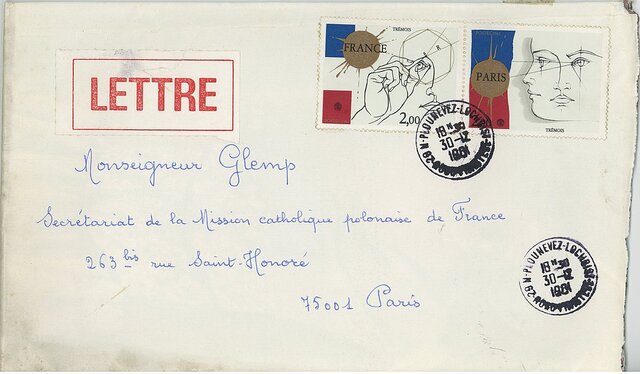 TRÉMOIS
FRANCE
2,00
PARIS
TRÉMOIS
LETTRE
PLOUNEVEZ-LOCHRIST
18 H 30
30-12
1981
Monseigneur Glemp
Secrétariat de la Mission catholique polonaise de France
263 bis rue Saint-Honoré
75001 Paris
PLOUNEVEZ-LOCHRIST
18 H 30
30-12
1981